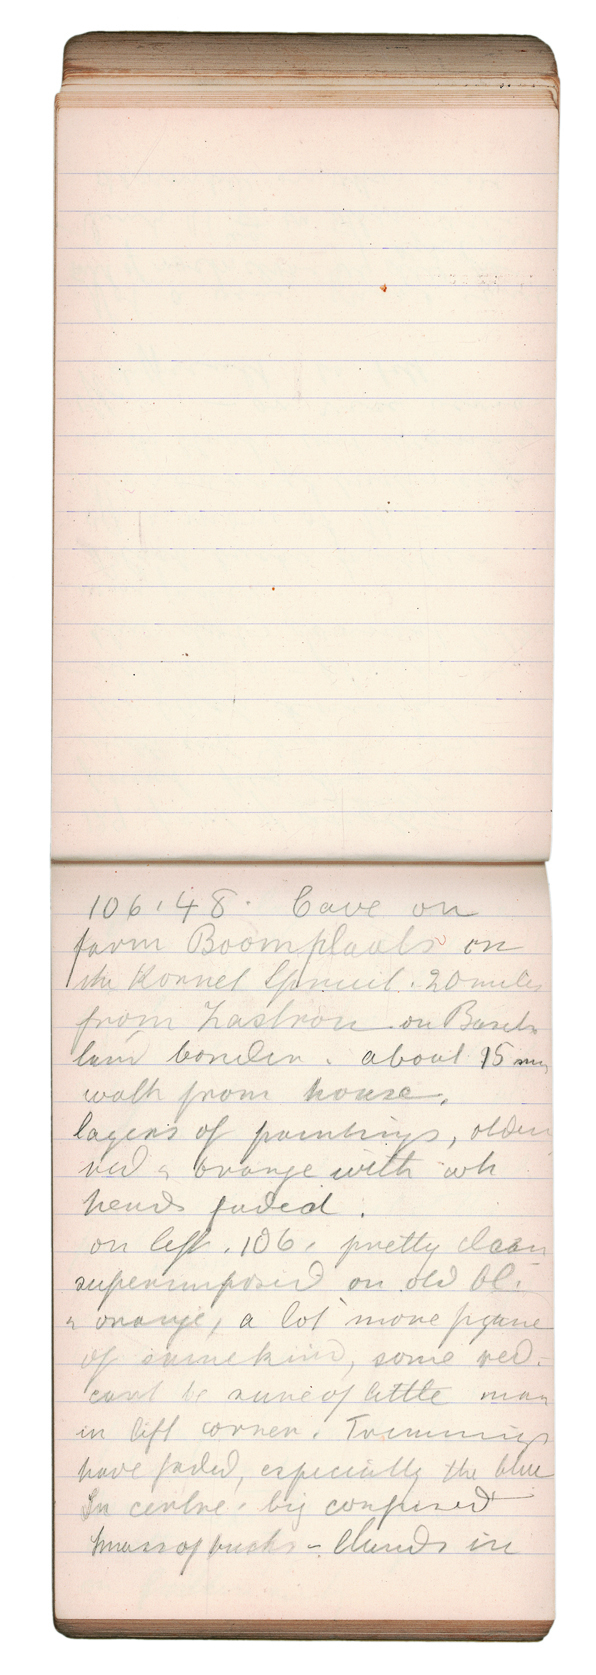 106.48. Cave on
farm Boomplaats on
the Kornet Spruit. 20 miles
from Zastron on Basuto
land border. about 15 min
walk from house.
layers of paintings, older
red & orange with wh
heads faded.
on left. 106. pretty clear
superimposed on old bl.
& orange, a lot more
of same kind, some red.
cant be sure of little man
in left corner. Trimmings
have faded, especially the blue
In centre. big confused
mass of bucks - Elands in